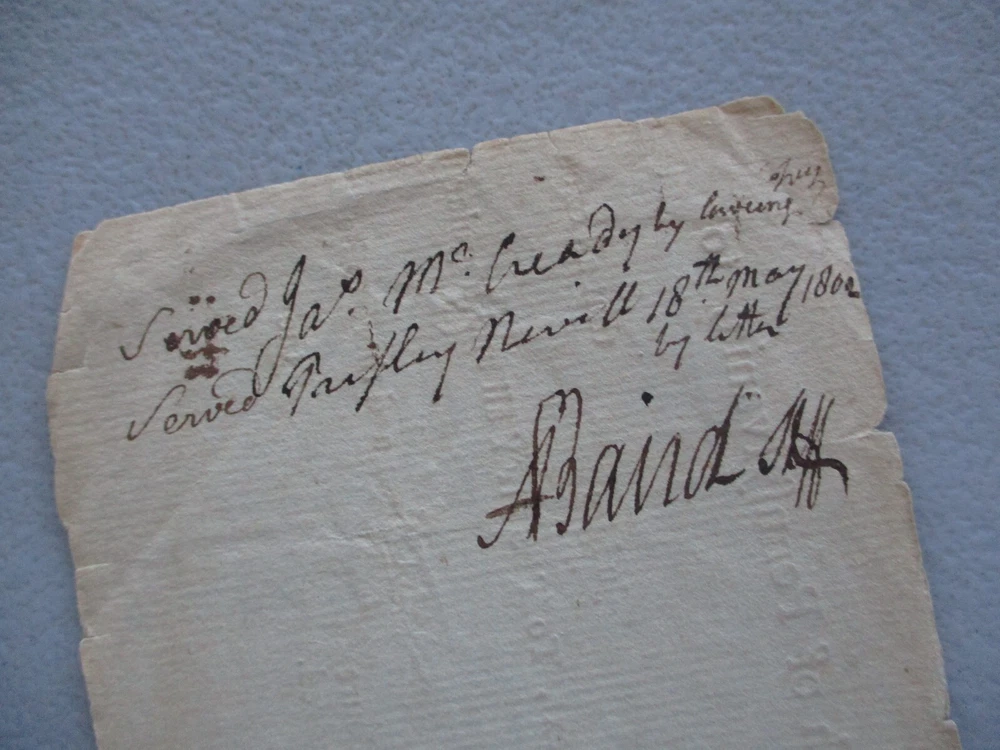 Served Jas. Mc. Cready by leaving copy
Served Presley Nevill 18th May 1802
by letter
ABaird Shff